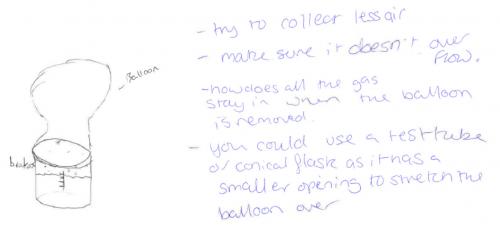 - try to collect less air
Balloon
- make sure it doesn't over
flow.
- how does all the gas
stay in when the balloon
is removed.
beaker
- you could use a test tube
or conical flask as it has a
smaller opening to stretch the
balloon over